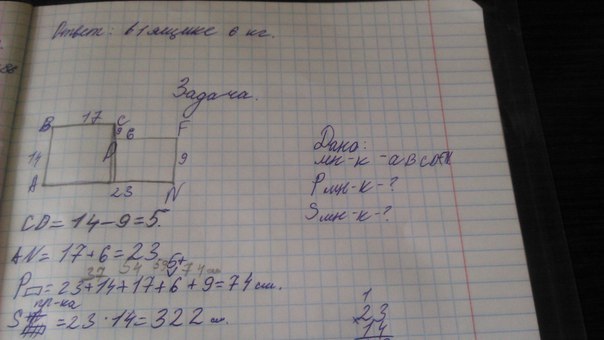 Ответ: в 1 ящике 6 кг.
Задача.
B 17 C
9 6 F
14 D 9
A 23 N
Дано:
мн-к - ABCDFN
P мн-к - ?
S мн-к - ?
CD = 14 - 9 = 5.
AN = 17 + 6 = 23.
37 54 59 5+ 74 см
P = 23 + 14 + 17 + 6 + 9 = 74 см.
пр-ка
S = 23 · 14 = 322 см.
1
23
× 14